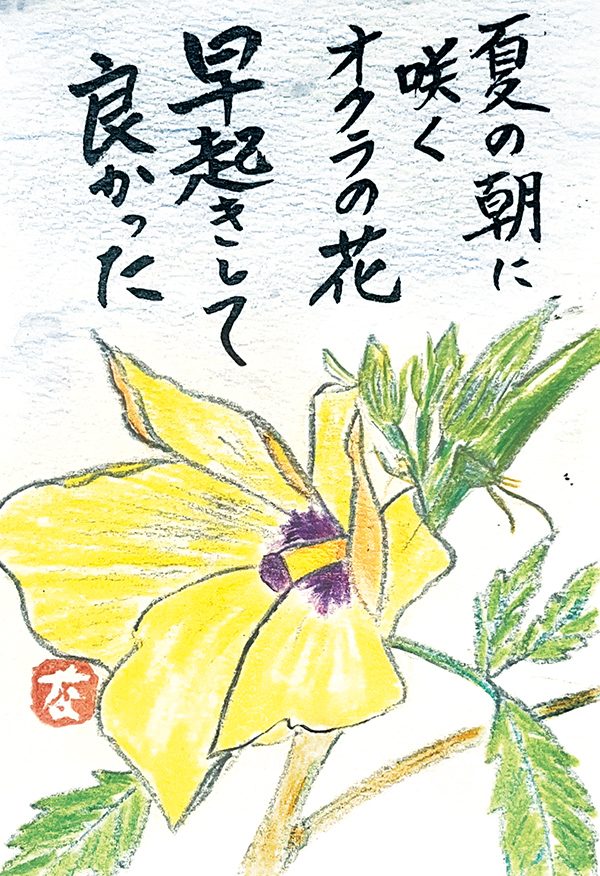 夏の朝に
咲く
オクラの花
早起きして
良かった